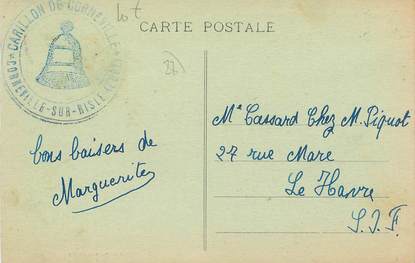 CARTE POSTALE
CARILLON DE CORNEVILLE
CORNEVILLE-SUR-RISLE
lot
27
bons baisers de
Marguerite
Me Cassard Chez M. Piquot
27 rue Mare
Le Havre
S. I. F.